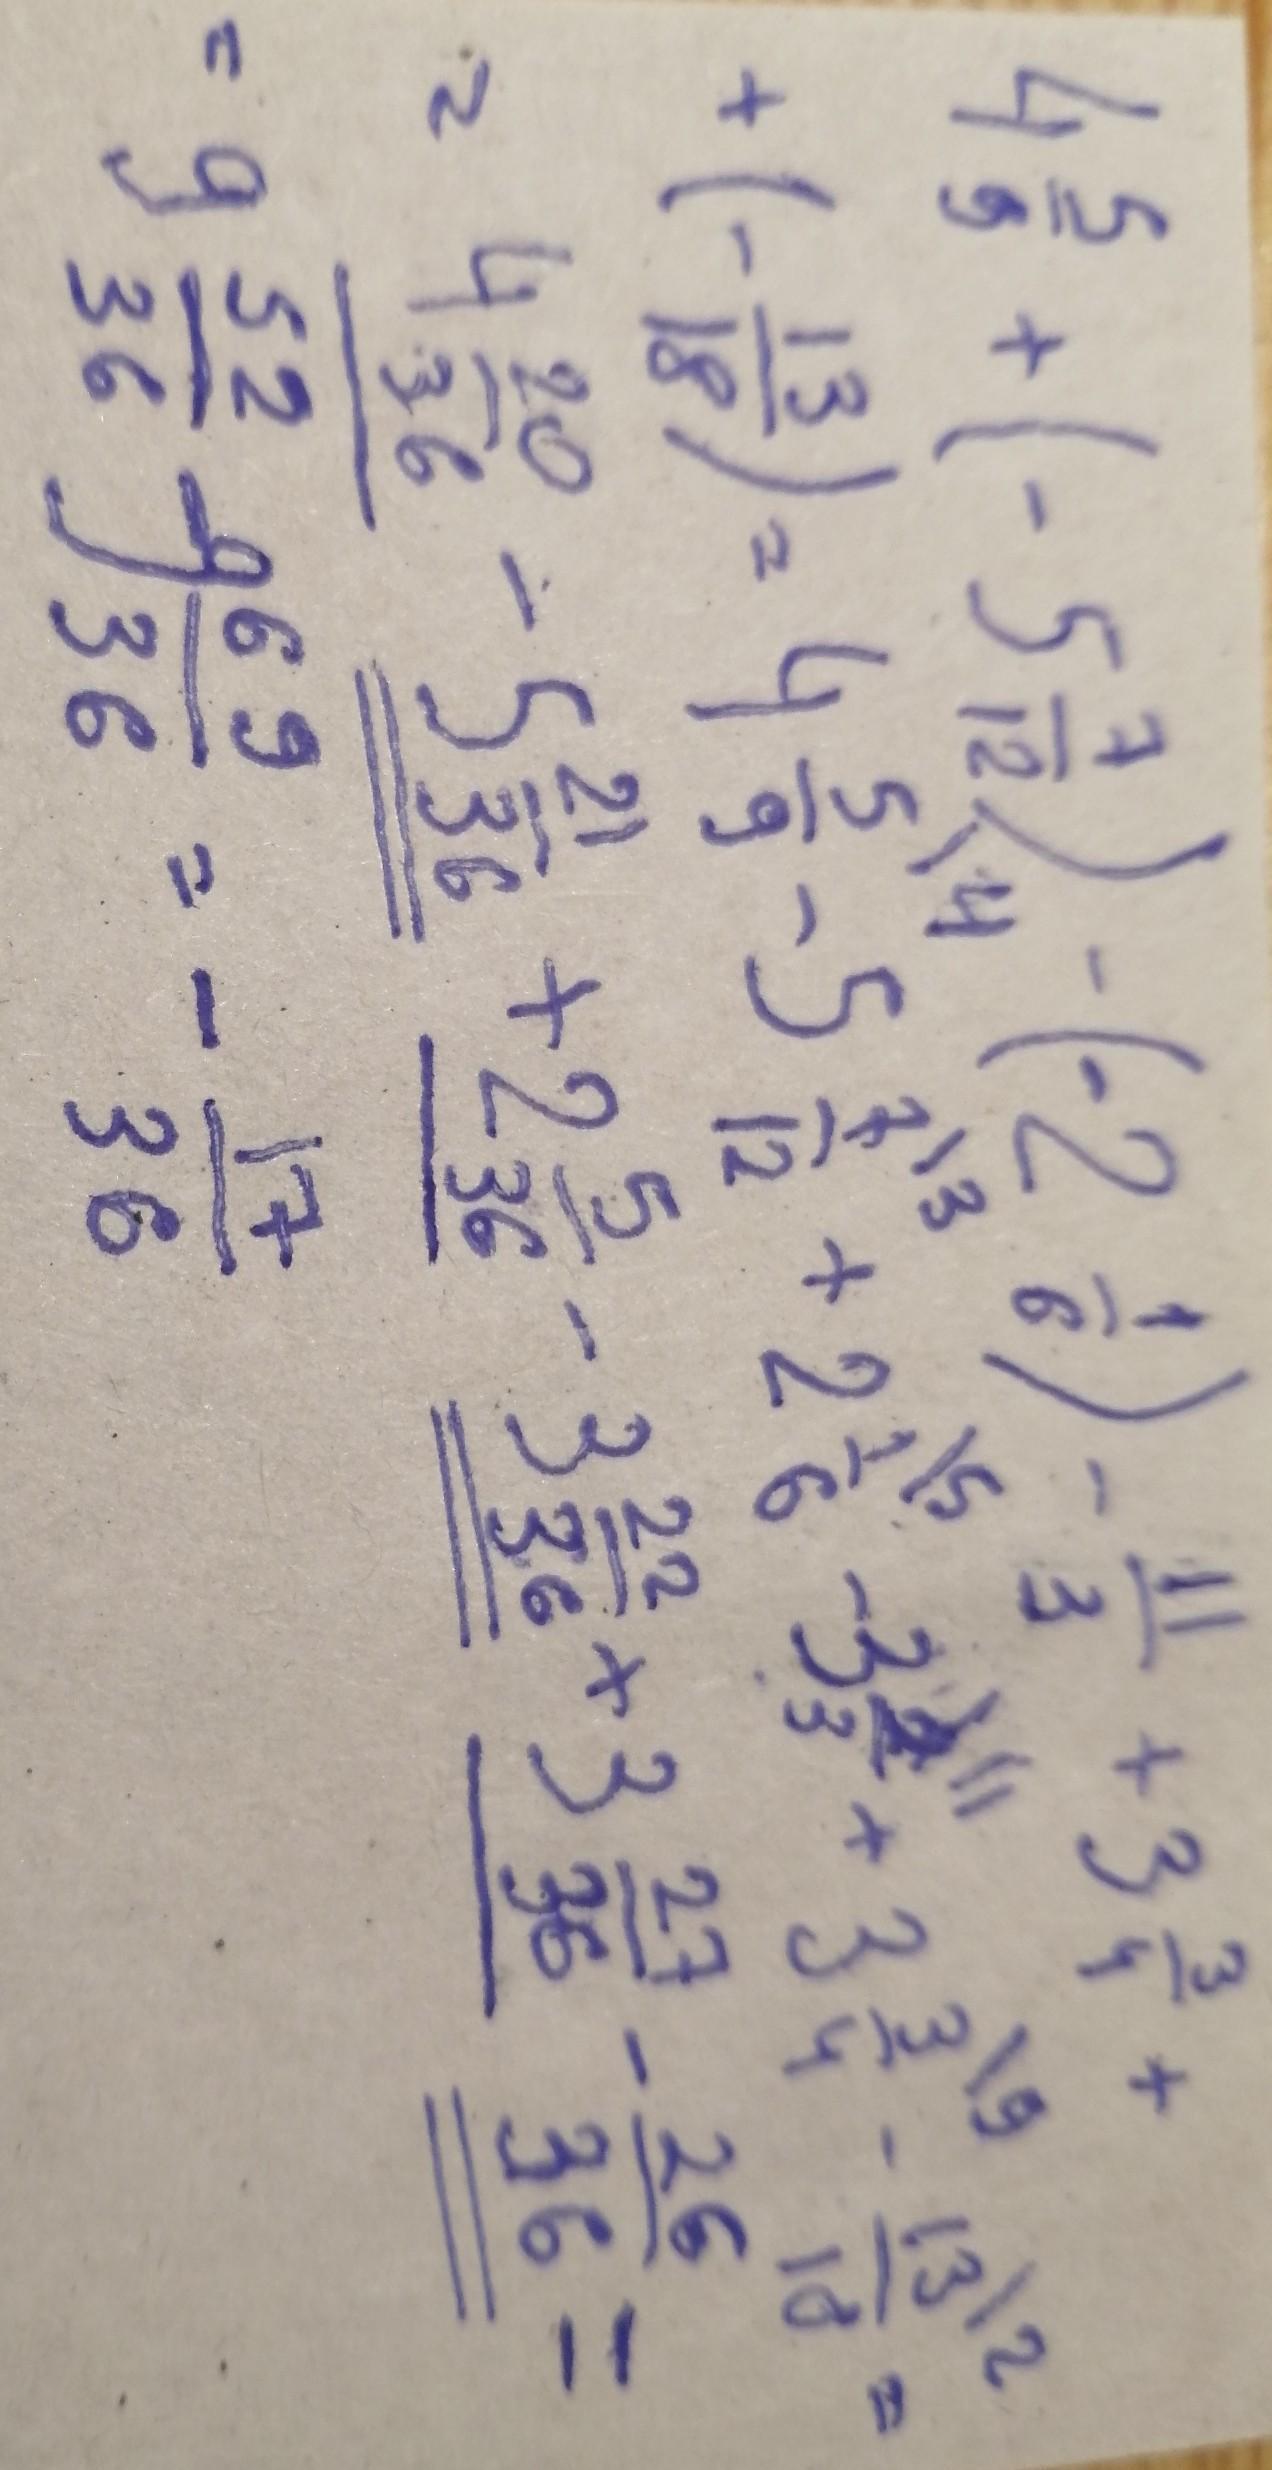 4 5/9 + (- 5 7/12) - (-2 1/6) - 11/3 + 3 3/4 +
+ (- 13/18) = 4 5/9 \4 - 5 7/12 \3 + 2 1/6 \5 - 3 2/3 \11 + 3 3/4 \9 - 13/18 \2 =
= 4 20/36 - 5 21/36 + 2 5/36 - 3 22/36 + 3 27/36 - 26/36 =
= 9 52/36 - 9 69/36 = - 17/36